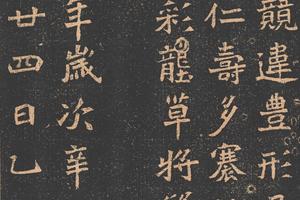 競違豊形
仁壽多蹇
彩龍草將
年歲次辛
廿四日乙